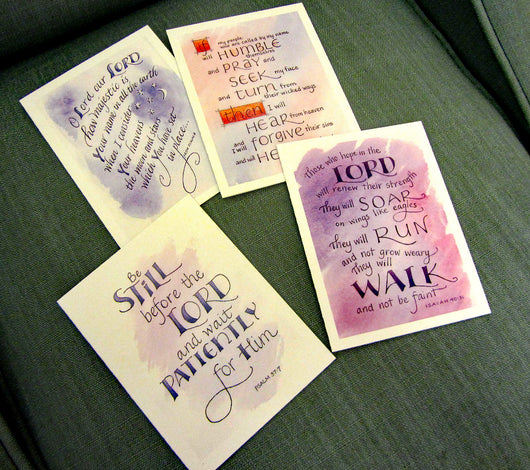 O Lord, our LORD
how majestic is
Your name in all the earth
when I consider
Your heavens
the moon and stars
which You have set
in place...
If my people,
who are called by my name
will HUMBLE themselves
and PRAY and
SEEK my face
and turn from
their wicked ways
then I will
HEAR from heaven
and I will forgive their sin
and will
Those who hope in the
LORD
will renew their strength
They will SOAR
on wings like eagles
They will RUN
and not grow weary
They will
WALK
and not be faint
ISAIAH 40:31
Be
STILL
before the
LORD
and wait
PATIENTLY
for Him
PSALM 37:7